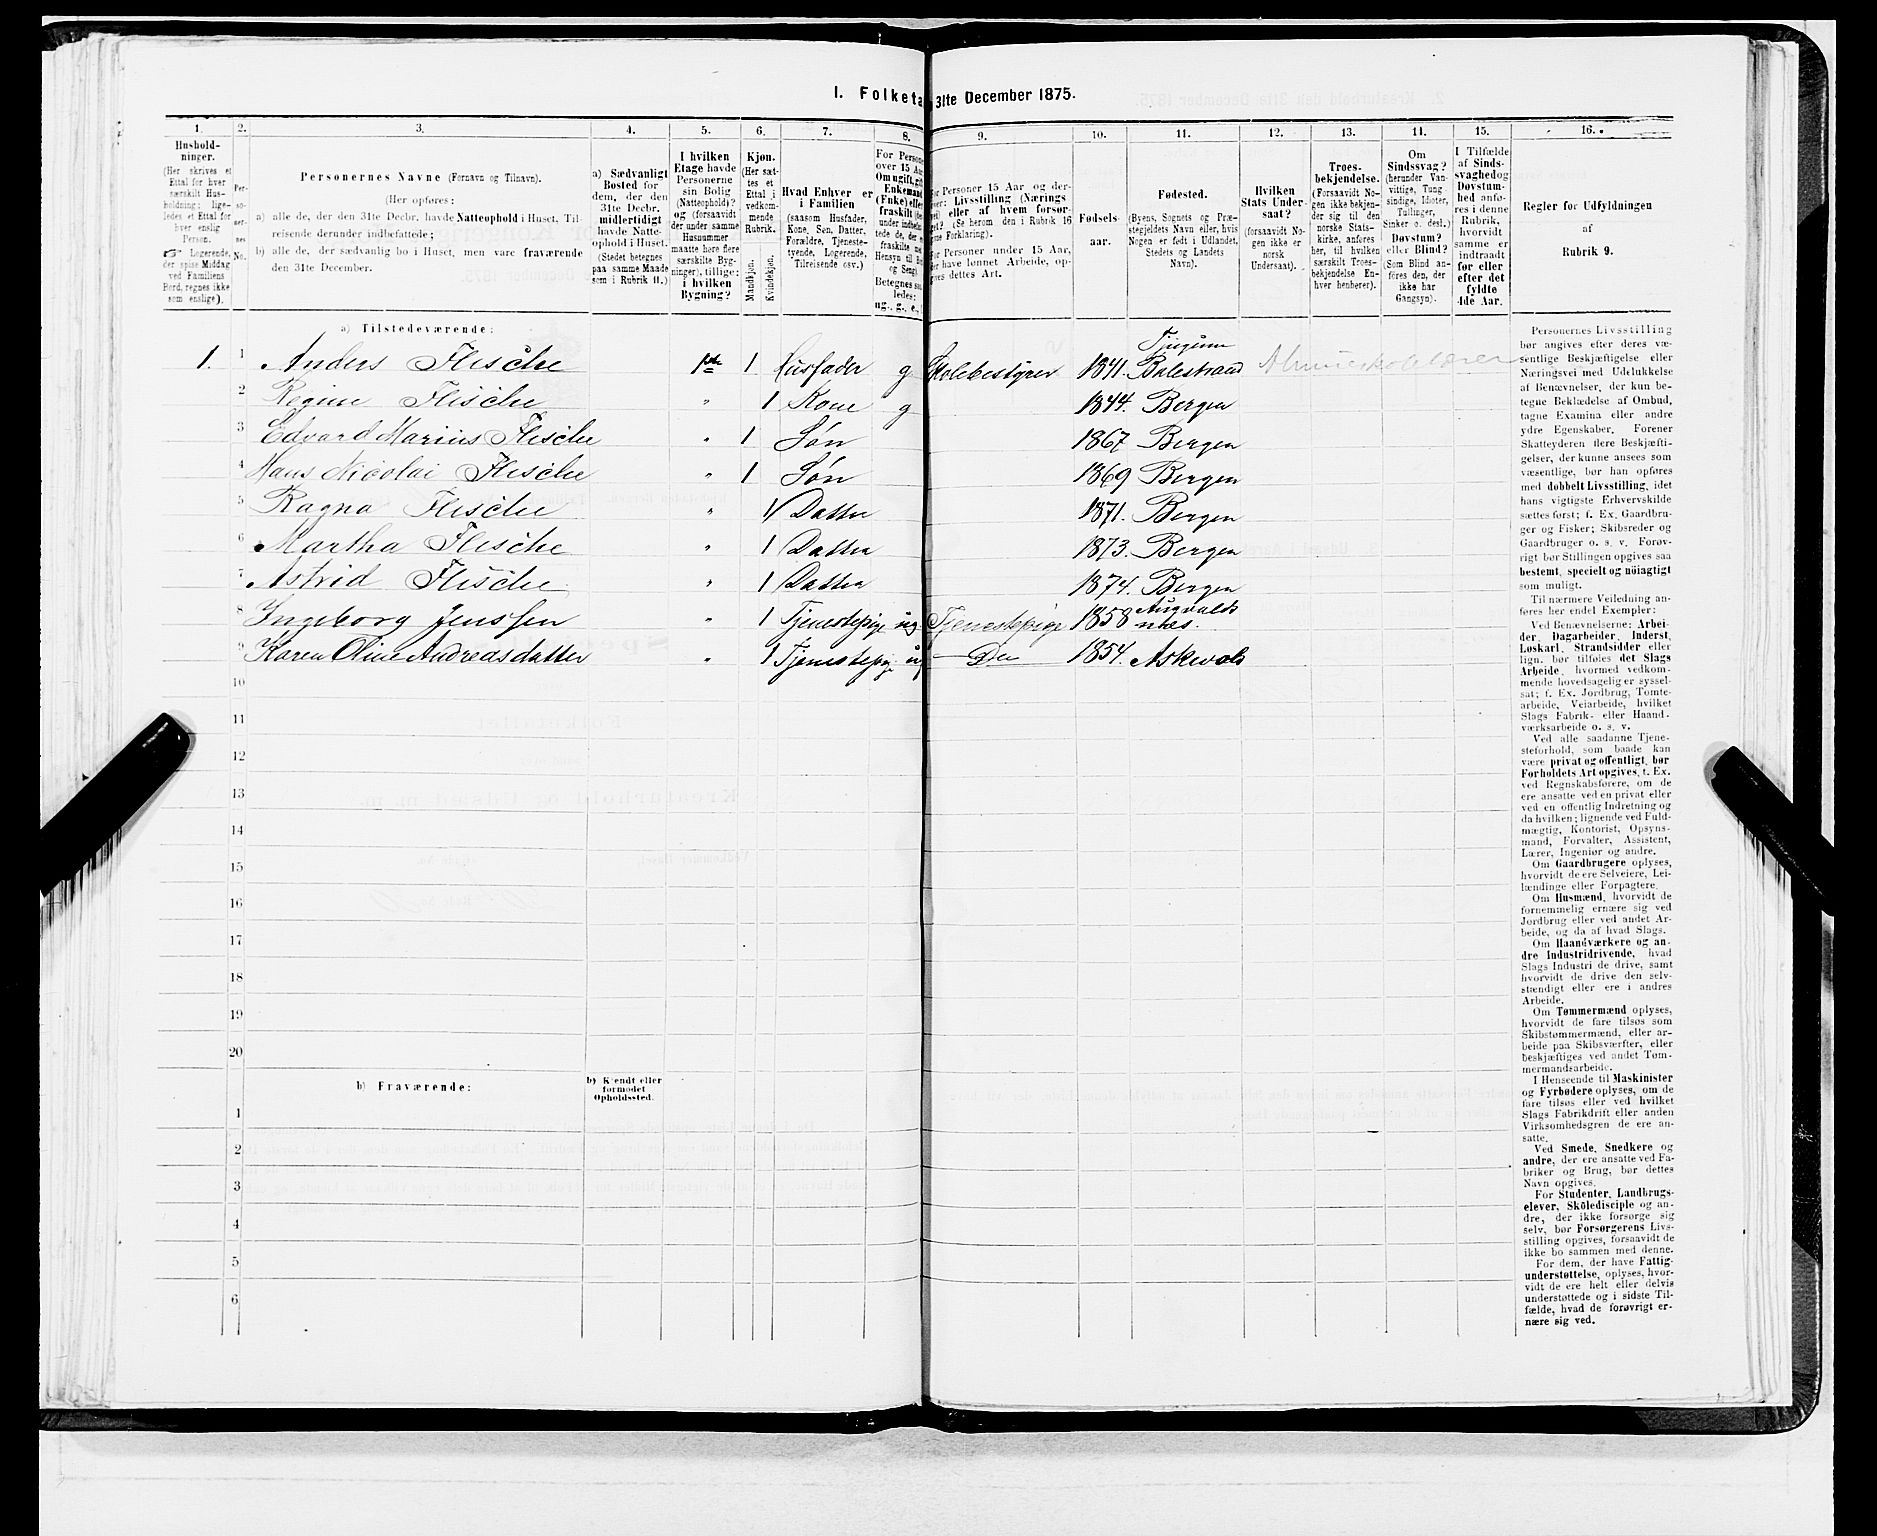 I. Folketa 31te December 1875.
1. 2. 3. 4. 5. 6. 7. 8. 9. 10. 11. 12. 13. 14. 15. 16.
Hushold-
ninger.
(Her skrives et
Ettal for hver
særskilt Hus-
holdning; lige-
ledes et Ettal for
hver enslig
Person.
☞ Logerende,
der spise Middag
ved Familiens
Bord, regnes ikke
som enslige).
Per-
so-
ner-
nes
No.
Personernes Navne (Fornavn og Tilnavn).
(Her opføres:
a) alle de, der den 31te Decbr. havde Natteophold i Huset, Til-
reisende derunder indbefattede;
b) alle de, der sædvanlig bo i Huset, men vare fraværende
den 31te December.
a) Sædvanligt
Bosted for
dem, der den
31te Decbr.
midlertidigt
havde Natte-
ophold i Huset.
(Stedet betegnes
paa samme Maade
som i Rubrik 11.)
I hvilken
Etage havde
Personerne
sin Bolig
(Natteophold)?
og (forsaavidt
der under samme
Husnummer
maatte høre flere
særskilte Byg-
ninger), tillige:
i hvilken
Bygning?
Kjøn.
(Her sæt-
tes et
Ettal i
vedkom-
mende
Rubrik.
Mandkjøn.
Kvindekjøn.
Hvad Enhver er
i Familien
(saasom Husfader,
Kone, Søn, Datter,
Forældre, Tjeneste-
tyende, Logerende,
Tilreisende osv.)
For Persone
over 15 Aar
Om ugift, gift
Enkemand
(Enke) eller
fraskilt
Betegnes saa
ledes:
ug., g., e.,
For Personer 15 Aar og der-
over: Livsstilling (Nærings
vei) eller af hvem forsør-
get? (Se herom den i Rubrik 16
givne Forklaring).
For Personer under 15 Aar,
der have lønnet Arbeide, op-
gives dettes Art.
Fødsels-
aar.
Fødested.
(Byens, Sognets og Præ-
stegjeldets Navn eller, hvis
Nogen er født i Udlandet,
Stedets og Landets
Navn).
Hvilken
Stats Under-
saat?
(forsaavidt No-
gen ikke er
norsk
Undersaat).
Troes-
bekjendelse.
(Forsaavidt No-
gen ikke bekjen-
der sig til den
norske Stats-
kirke, anføres
her, til hvilken
særskilt Troes-
bekjendelse En-
hver henhører).
Om
Sindssvag?
(herunder Van-
vittige, Tung
sindige, Idioter,
Tullinger,
Sinker o. desl.)
Døvstum?
eller Blind?
(Som Blind an-
føres den, der
ikke har
Gangsyn).
I Tilfælde
af Sinds-
svaghed og
Døvstum-
hed anfø-
res i denne
Rubrik,
hvorvidt
samme er
indtraadt
før eller
efter det
fyldte
4de Aar.
Regler for Udfyldningen
af
Rubrik 9.
a) Tilstedeværende:
1. 1 Anders Flesche 1ste 1 Husfader g Skolebestyrer 1841. Tjugum Balestrand
2 Regine Flesche " 1 Kone g 1844. Bergen
3 Edvard Marius Flesche " 1 Søn 1867 Bergen
4 Hans Nicolai Flesche " 1 Søn 1869 Bergen
5 Ragna Flesche " 1 Datter 1871. Bergen
6 Martha Flesche " 1 Datter 1873. Bergen
7 Astrid Flesche " 1 Datter 1874. Bergen
8 Ingeborg Jenssen " 1 Tjenestepige ug Tjenestepige 1858 Augvalds næs.
9 Karen Oline Andreasdatter " 1 Tjenestepige ug Do 1854. Askevold
10
11
12
13
14
15
16
17
18
19
20
b) Fraværende:
b) Kjendt eller
formodet
Opholdssted.
1
2
3
4
5
6
Personernes Livsstilling
bør angives efter deres væ-
sentlige Beskjæftigelse eller
Næringsvei med Udelukkelse
af Benævnelser, der kun be-
tegne Beklædelse af Ombud,
tagne Examina eller andre
ydre Egenskaber. Forener
Skatteyderen flere Beskjæfti-
gelser, der kunne ansees som
væsentlige, bør han opføres
med dobbelt Livsstilling, idet
hans vigtigste Erhvervskilde
sættes først; f. Ex. Gaardbru-
ger og Fisker; Skibsreder og
Gaardbruger o. s. v. Forøv-
rigt bør Stillingen opgives saa
bestemt, specielt og nöiagtigt
som muligt.
Til nærmere Veiledning an-
føres her endel Exempler:
Ved Benævnelserne: Arbei-
der, Dagarbeider, Inderst,
Løskarl, Strandsidder eller
lign. bør tilføies det Slags
Arbeide, hvormed vedkom-
mende hovedsagelig er syssel-
sat; f. Ex. Jordbrug, Tomte-
arbeide, Veiarbeide, hvilket
Slags Fabrik- eller Haand-
værksarbeide o. s. v.
Ved alle saadanne Tjene-
steforhold, som baade kan
være privat og offentligt, bør
Forholdets Art opgives, t. Ex.
ved Regnskabsførere, om de
ere ansatte ved en privat eller
ved en offentlig Indretning og
da hvilken; lignende ved Fuld-
mægtig, Kontorist, Opsyns-
mand, Forvalter, Assistent,
Lærer, Ingeniør og andre.
Om Gaardbrugere oplyses,
hvorvidt de ere Selveiere, Lei-
lændinge eller Forpagtere.
Om Husmænd, hvorvidt de
fornemmelig ernære sig ved
Jordbrug eller ved andet Ar-
beide, og da af hvad Slags.
Om Haandværkere og an-
dre Industridrivende, hvad
Slags Industri de drive, samt
hvorvidt de drive den selv-
stændigt eller ere i andres
Arbeide.
Om Tømmermænd oplyses,
hvorvidt de fare tilsøs som
Skibstømmermænd, eller ar-
beide paa Skibsværfter, eller
beskjæftiges ved andet Tøm-
mermandsarbeide.
I Henseende til Maskinister
og Fyrbødere oplyses, om de
fare tilsøs eller ved hvilket
Slags Fabrikdrift eller anden
Virksomhedsgren de ere an-
satte.
Ved Smede, Snedkere og
andre, der ere ansatte ved Fa-
briker og Brug, bør dettes
Navn opgives.
For Studenter, Landbrugs-
elever, Skoledisciple og an-
dre, der ikke forsørge sig
selv, bør Forsørgerens Livs-
stilling opgives, forsaavidt de
ikke bo sammen med denne.
For dem, der have Fattig-
understøttelse, oplyses, hvor-
vidt de ere helt eller delvis
understøttede og i sidste Til-
fælde, hvad de forøvrigt er-
nære sig ved.